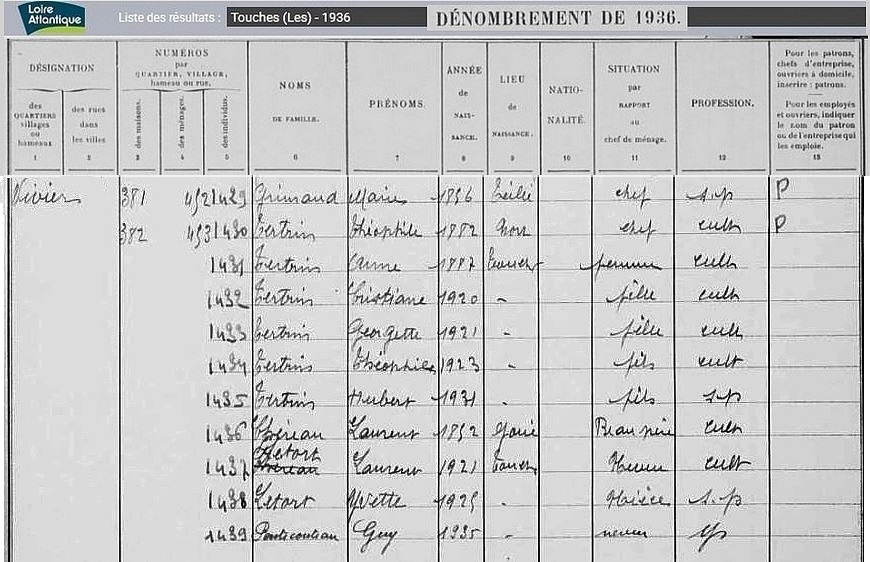 Loire Atlantique
Liste des résultats : Touches (Les) - 1936
DÉNOMBREMENT DE 1936.
DÉSIGNATION
des QUARTIERS villages ou hameaux
1
des rues dans les villes
2
NUMÉROS par QUARTIER, VILLAGE, hameau ou rue.
des maisons.
3
des ménages.
4
des individus.
5
NOMS DE FAMILLE.
6
PRÉNOMS.
7
ANNÉE de NAIS- SANCE.
8
LIEU de NAISSANCE.
9
NATIO- NALITÉ.
10
SITUATION par RAPPORT au chef de ménage.
11
PROFESSION.
12
Pour les patrons, chefs d'entreprise, ouvriers à domicile, inscrire : patrons.
Pour les employés et ouvriers, indiquer le nom du patron ou de l'entreprise qui les emploie.
13
Vivier 381 452 1429 Grimaud Marie 1856 chef s.p P
382 453 1430 Tertrin Théophile 1882 Nort chef cult P
1431 Tertrin Anne 1887 Touches femme cult
1432 Tertrin Cristiane 1920 - fille cult
1433 Tertrin Georgette 1921 - fille cult
1434 Tertrin Théophile 1923 - fils cult
1435 Tertrin Hubert 1931 - fils s.p
1436 Laurent 1852 Beau père cult
1437 Letort Laurent 1921 Touches Neveu cult
1438 Letort Yvette 1925 - Nièce s.p
1439 Guy 1935 - neveu sp